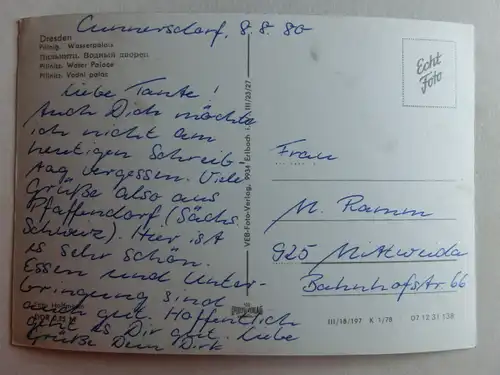 Cunnersdorf, 8.8.80
Dresden
Pillnitz. Wasserpalais
Пильниц. Водный дворец
Pillnitz. Water Palace
Pillnitz. Vodní palác
Liebe Tante!
Auch Dich möchte
ich nicht am
heutigen Schreib-
tag vergessen. Viele
Grüße also aus
Pfaffendorf (Sächs.
Schweiz). Hier ist
es sehr schön.
Essen und Unter-
bringung sind
auch gut. Hoffentlich
geht es Dir gut. Liebe
Grüße Dein Dirk
VEB-Foto-Verlag, 9934 Erlbach i. V. III/23/27
Echt
Foto
Frau
M. Ramm
925 Mittweida
Bahnhofstr. 66
III/18/197 K 1/78 07 12 31 138